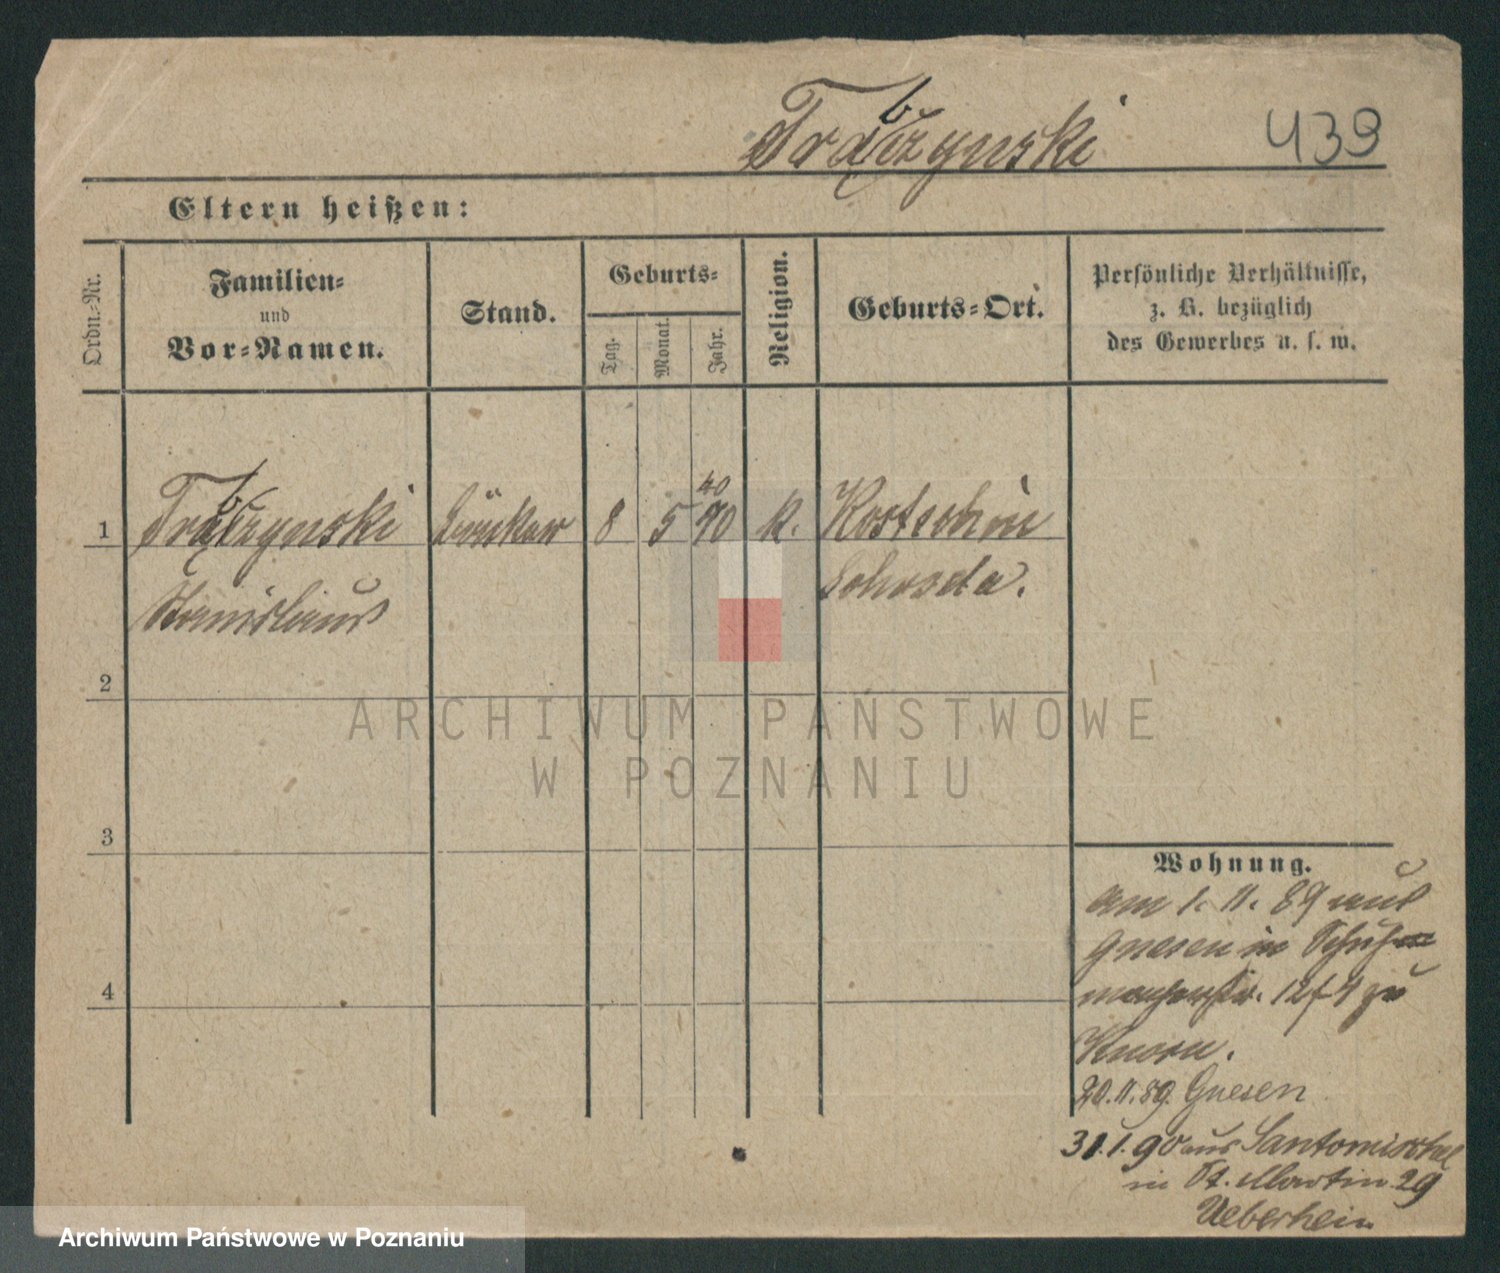 Trąbczynski 439
Eltern heißen:
Ordn.-Nr.
Familien-
und
Vor-Namen.
Stand.
Geburts-
Tag.
Monat.
Jahr.
Religion.
Geburts-Ort.
Persönliche Verhältnisse,
z. B. bezüglich
des Gewerbes u. s. w.
40
1 Trąbczynski 8 5 70 k. Kostschin
Stanislaus Schroda.
2
3
4
Wohnung.
am 1. 11. 89 aus
Gnesen in Schuh-
macherstr. 12
20.11.89. Gnesen
31.1.90 aus Santomischel
in St. Martin 29
ARCHIWUM PAŃSTWOWE
W POZNANIU
Archiwum Państwowe w Poznaniu